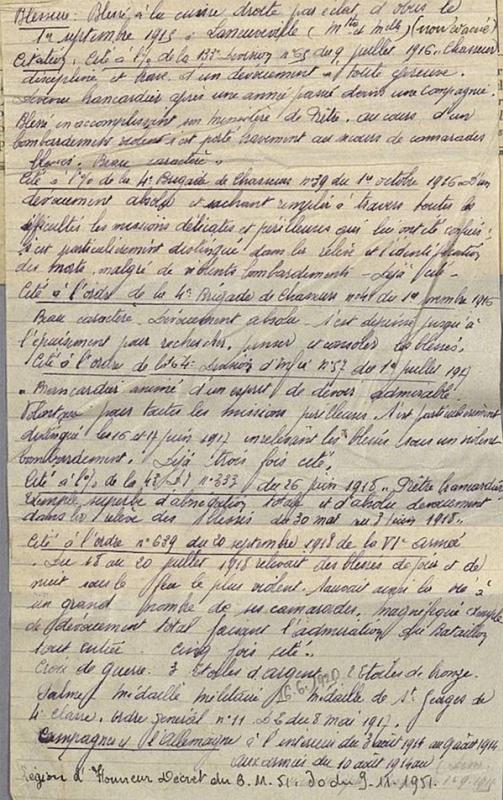 Blessure : Blessé à la cuisse droite par éclat d'obus le
1er septembre 1915 à Laneuveville (Mthe et Mlle) (non évacué)
Citation. Cité à l'/o de la Division du 9 juillet 1916. Chasseur
discipliné et brave d'un dévouement à toute épreuve.
Devenu brancardier après une année passé dans une compagnie.
Blessé en accomplissant son ministère de Prêtre, au cours d'un
bombardement violent s'est porté bravement au secours de camarades
blessés. Beau caractère.
Cité à l'/o de la 4e Brigade de Chasseurs n°39 du 1er octobre 1916 - D'un
dévouement absolu et sachant remplir à travers toutes les
difficultés les missions délicates et périlleuses qui lui ont été confiées.
S'est particulièrement distingué dans la relève et l'identification
des morts, malgré de violents bombardements - Déjà cité -
Cité à l'ordre de la 4e Brigade de Chasseurs du 1er novembre 1916
Beau caractère. Dévouement absolu - s'est dépensé jusqu'à
l'épuisement pour rechercher, panser et consoler les blessés.
Cité à l'ordre de la 64e Division d'Infie n°57 du 1er juillet 1917
"Brancardier animé d'un esprit de devoir admirable.
Volontaire pour toutes les missions périlleuses. S'est particulièrement
distingué les 16 et 17 juin 1917 en relevant les blessés sous un violent
bombardement. Déjà trois fois cité.
Cité à l'/o de la n°333 du 26 juin 1918. "Prêtre brancardier
Exemple superbe d'abnégation totale et d'absolu dévouement
dans la relève des blessés du 30 mai au juin 1918"
Cité à l'ordre n°639 du 20 septembre 1918 de la VIe armée
. Du 18 au 20 juillet 1918 relevait des blessés de jour et de
nuit sous le feu le plus violent. Sauvait ainsi la vie à
un grand nombre de ses camarades, magnifique exemple
de dévouement total faisant l'admiration du Bataillon
tout entier. Cinq fois cité.
Croix de guerre. 3 Etoiles d'argent, 2 Etoiles de bronze.
Palme, médaille militaire 16.6.1920 médaille de St Georges de
4e classe. ordre général n°11 du 8 mai 1917.
Campagnes d'Allemagne à l'intérieur du 3 août 1914 au 9 août 1914
aux armées du 10 août 1914 au
Légion d'Honneur Décret du 8.11.51. JO du 9.11.1951.